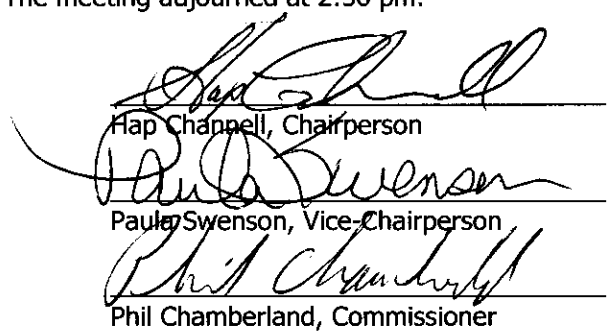 The meeting adjourned at 2:30 pm.
Hap Channell
Hap Channell, Chairperson
Paula Swenson
Paula Swenson, Vice-Chairperson
Phil Chamberland
Phil Chamberland, Commissioner